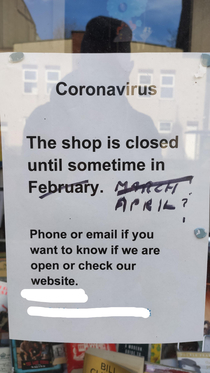 Coronavirus
The shop is closed
until sometime in
February. MARCH
APRIL?
!
Phone or email if you
want to know if we are
open or check our
website.
BILL